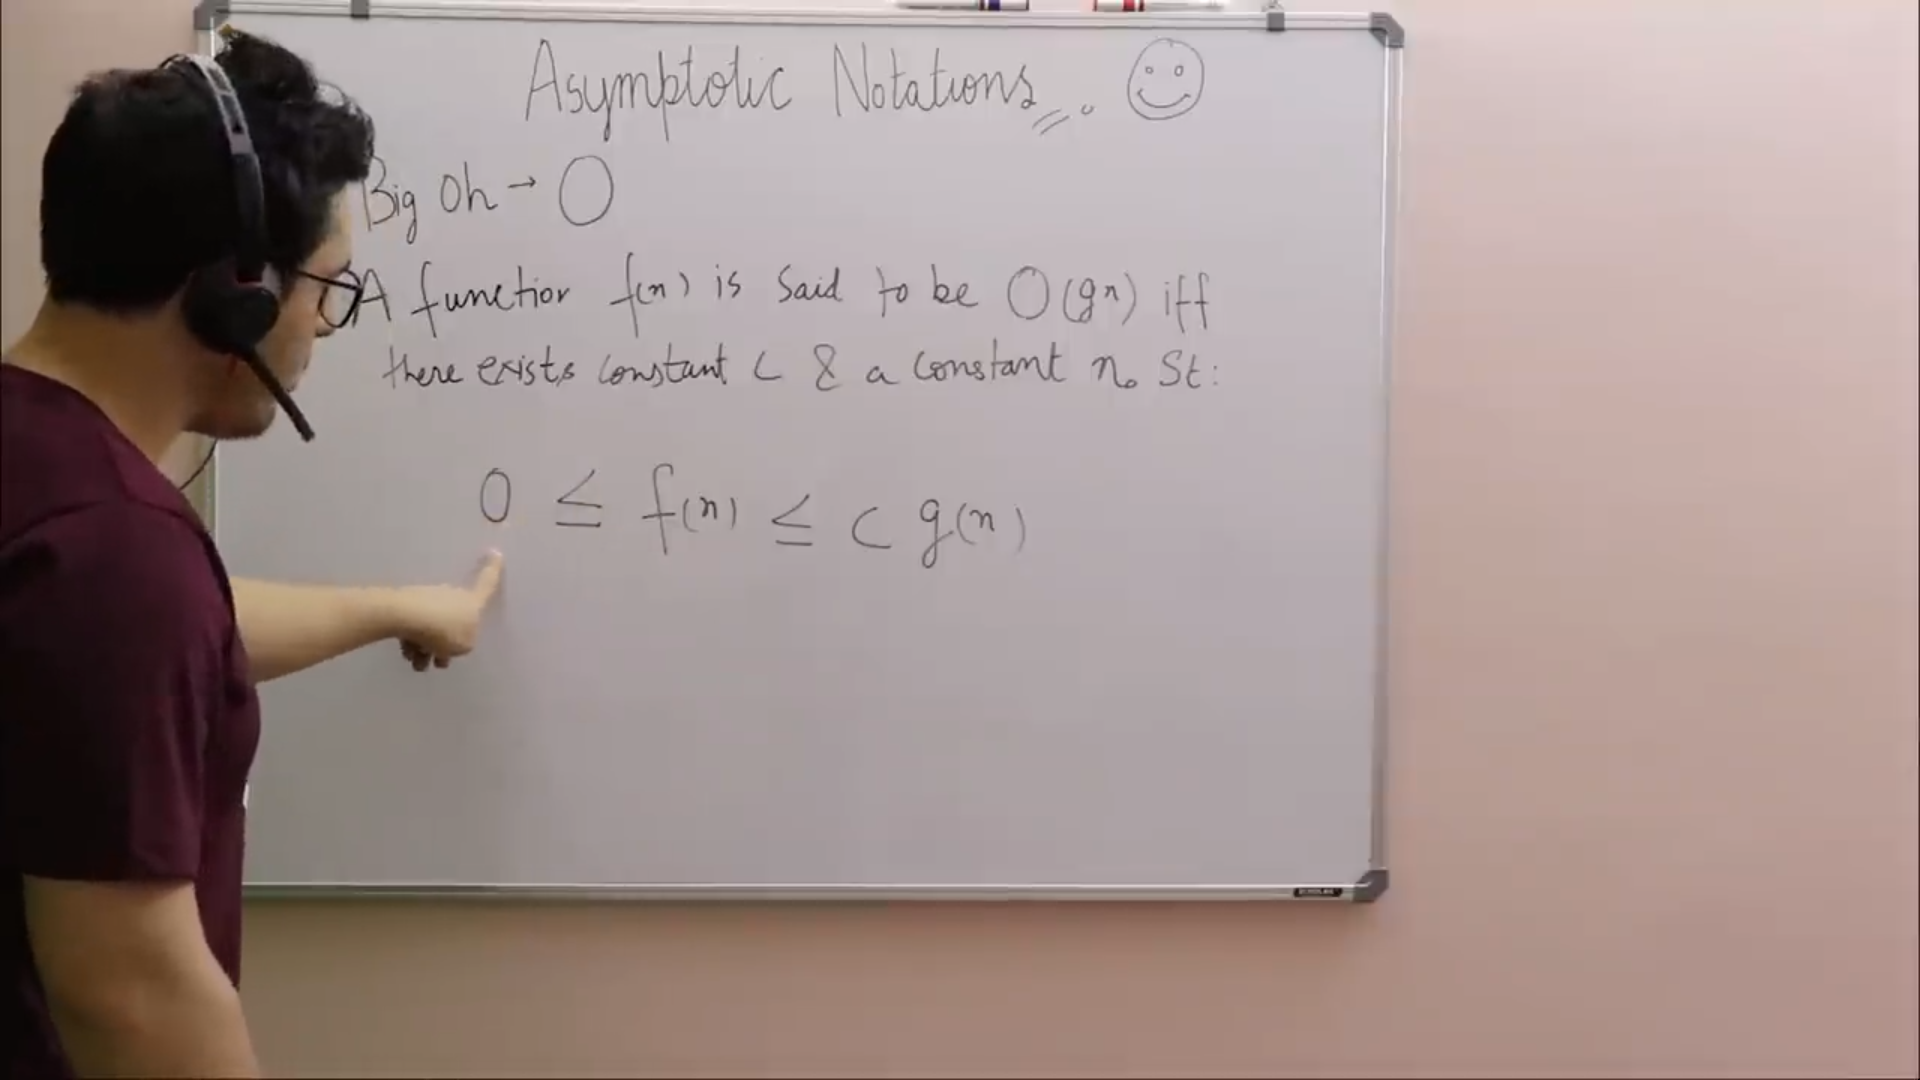 Asymptotic Notations
Big Oh → O
A function f(n) is said to be O(gn) iff
there exists constant C & a constant n₀ St:
0 ≤ f(n) ≤ C g(n)